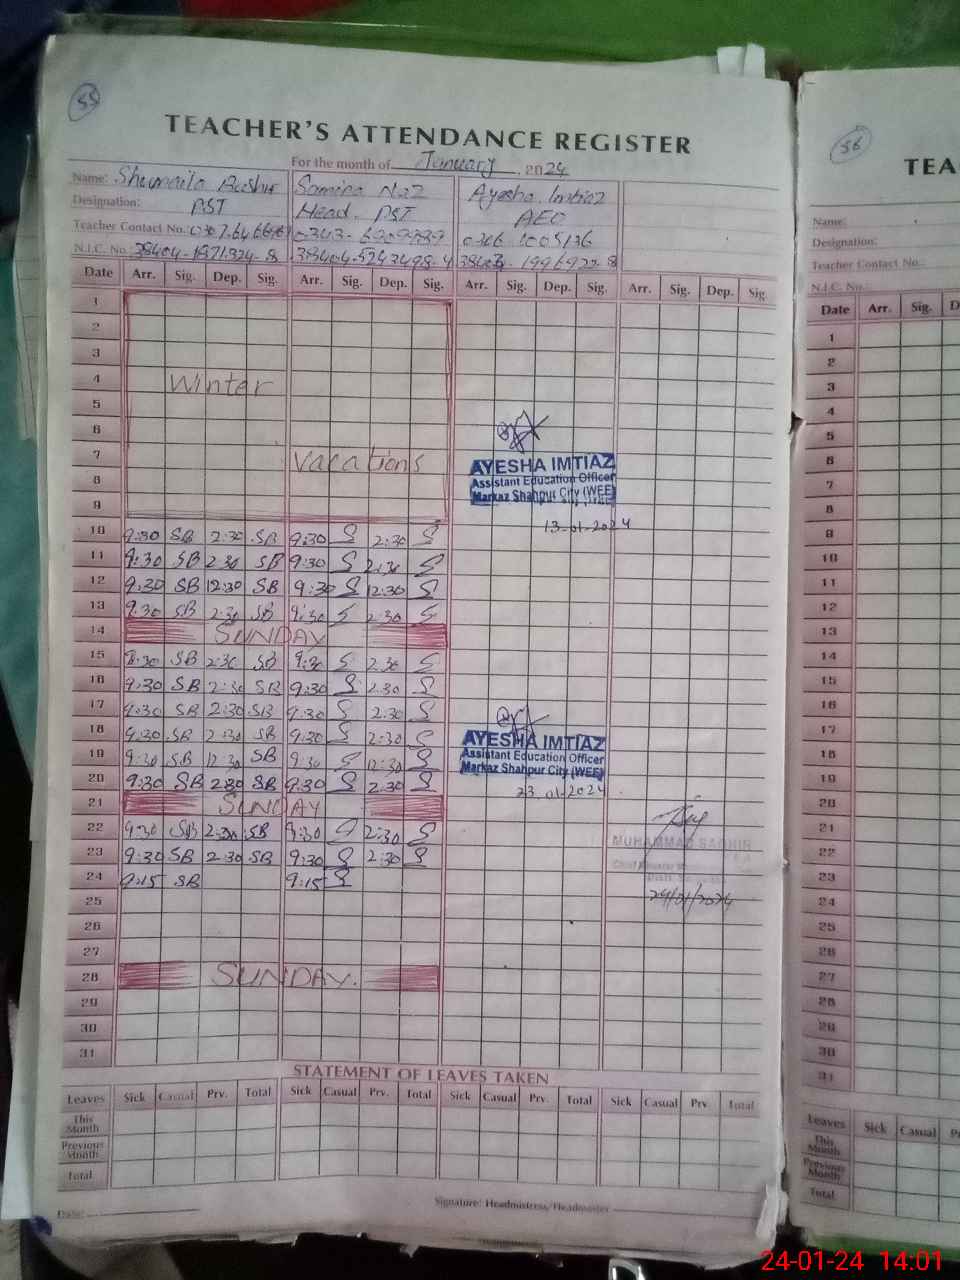 55
TEACHER'S ATTENDANCE REGISTER
For the month of January, 2024
Name: Shumaila Bashir Samina Naz Ayesha Imtiaz
Designation: PST Head. PST AEO
Teacher Contact No. 0343-6309789 0306 1005136
N.I.C. No. 38404-1871324-8 38404-5243498-4 38403-1996922-8
Date Arr. Sig. Dep. Sig. Arr. Sig. Dep. Sig. Arr. Sig. Dep. Sig. Arr. Sig. Dep. Sig.
1
2
3
4 Winter
5
6
7 vacations
8
9
AYESHA IMTIAZ
Assistant Education Officer
Markaz Shahpur City (WEE)
13-01-2024
10 9:30 SB 2:30 SB 9:30 S 2:30 S
11 9:30 SB 2:30 SB 9:30 S 2:30 S
12 9:30 SB 12:30 SB 9:30 S 12:30 S
13 9:30 SB 2:30 SB 9:30 S 2:30 S
14 SUNDAY
15 9:30 SB 2:30 SB 9:30 S 2:30 S
16 9:30 SB 2:30 SB 9:30 S 2:30 S
17 9:30 SB 2:30 SB 9:30 S 2:30 S
18 9:30 SB 2:30 SB 9:30 S 2:30 S
19 9:30 SB 12:30 SB 9:30 S 12:30 S
20 9:30 SB 2:30 SB 9:30 S 2:30 S
AYESHA IMTIAZ
Assistant Education Officer
Markaz Shahpur City (WEE)
23-01-2024
21 SUNDAY
22 9:30 SB 2:30 SB 9:30 S 2:30 S
23 9:30 SB 2:30 SB 9:30 S 2:30 S
24 9:15 SB 9:15 S
MUHAMMAD
24/01/2024
25
26
27
28 SUNDAY.
29
30
31
STATEMENT OF LEAVES TAKEN
Leaves Sick Casual Prv. Total Sick Casual Prv. Total Sick Casual Prv. Total Sick Casual Prv. Total
This Month
Previous Month
Total
Date:
Signature: Headmistress/Headmaster
56
TEA
Name:
Designation:
Teacher Contact No.:
N.I.C. No.:
Date Arr. Sig. D
1
2
3
4
5
6
7
8
9
10
11
12
13
14
15
16
17
18
19
20
21
22
23
24
25
26
27
28
29
30
31
Leaves Sick Casual P
This Month
Previous Month
Total
24-01-24 14:01